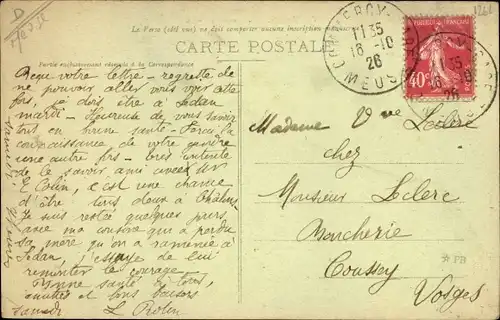 D
1261
Le Verso (côté vue) ne doit comporter aucune inscription
CARTE POSTALE
Partie exclusivement réservée à la Correspondance
COMMERCY
11 35
16 -10
26
MEUSE
40c
Reçu votre lettre - regrette de
ne pouvoir aller vous voir cette
fois, je dois être à Sedan
mardi - Heureuse de vous savoir
tout en bonne santé - Ferai la
connaissance de votre gendre
une autre fois - très contente
de le savoir, ami avec
E Colin, c'est une chance
d'être tous deux à Châlons
Je suis restée quelques jours
avec ma cousine qui a perdu
sa mère qu'on a ramenée à
Sedan, j'essaye de lui
remonter le courage.
Bonne santé à tous,
amitiés et bons baisers
samedi L Rolin
Madame Vve Leclerc
chez
Monsieur Leclerc
Boucherie
Coussey
Vosges